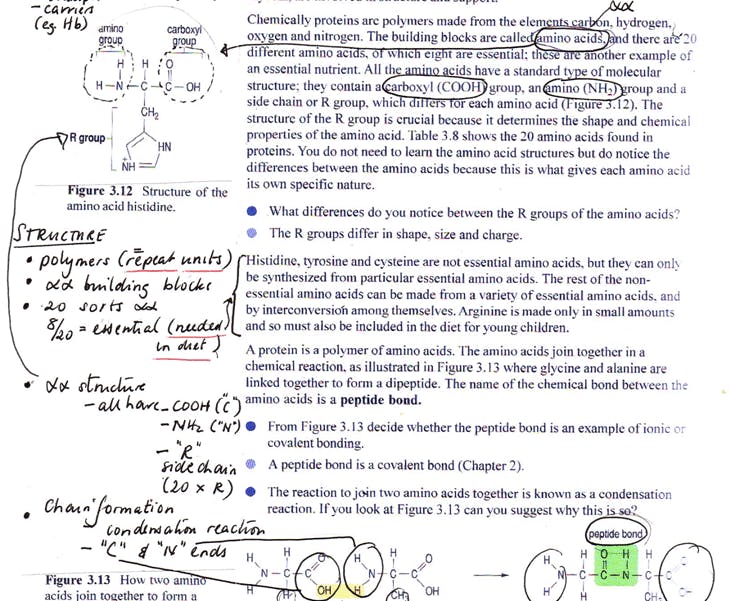 - carriers
(eg. Hb)
αα
amino group
carboxyl group
H H O
H–N–C–C–OH
CH₂
R group
HN
NH
Figure 3.12 Structure of the
amino acid histidine.
Chemically proteins are polymers made from the elements carbon, hydrogen,
oxygen and nitrogen. The building blocks are called amino acids, and there are 20
different amino acids, of which eight are essential; these are another example of
an essential nutrient. All the amino acids have a standard type of molecular
structure; they contain a carboxyl (COOH) group, an amino (NH₂) group and a
side chain or R group, which differs for each amino acid (Figure 3.12). The
structure of the R group is crucial because it determines the shape and chemical
properties of the amino acid. Table 3.8 shows the 20 amino acids found in
proteins. You do not need to learn the amino acid structures but do notice the
differences between the amino acids because this is what gives each amino acid
its own specific nature.
What differences do you notice between the R groups of the amino acids?
The R groups differ in shape, size and charge.
Histidine, tyrosine and cysteine are not essential amino acids, but they can only
be synthesized from particular essential amino acids. The rest of the non-
essential amino acids can be made from a variety of essential amino acids, and
by interconversion among themselves. Arginine is made only in small amounts
and so must also be included in the diet for young children.
A protein is a polymer of amino acids. The amino acids join together in a
chemical reaction, as illustrated in Figure 3.13 where glycine and alanine are
linked together to form a dipeptide. The name of the chemical bond between the
amino acids is a peptide bond.
From Figure 3.13 decide whether the peptide bond is an example of ionic or
covalent bonding.
A peptide bond is a covalent bond (Chapter 2).
The reaction to join two amino acids together is known as a condensation
reaction. If you look at Figure 3.13 can you suggest why this is so?
STRUCTURE
• polymers (repeat units)
• αα building blocks
• 20 sorts αα
8/20 = essential (needed
in diet)
• αα structure
- all have - COOH ("C")
- NH₂ ("N")
- "R"
side chain
(20 x R)
• Chain formation
condensation reaction
- "C" & "N" ends
peptide bond
H H O H H O
N–C–C N–C–C
H OH H OH
H H O H H
N–C–C–N–C–C
Figure 3.13 How two amino
acids join together to form a